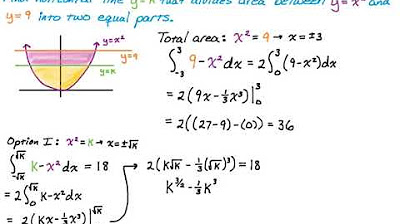 Find horizontal line y=k that divides area between y=x² and
y=9 into two equal parts.
y=x²
y=9
y=k
Total area: x² = 9 → x = ±3
∫₋₃³ 9-x² dx = 2∫₀³ (9-x²)dx
= 2(9x - ⅓x³)|₀³
= 2((27-9)-(0)) = 36
Option I: x² = k → x = ±√k
∫₋√k^√k k-x² dx = 18
= 2∫₀^√k k-x² dx
= 2(kx - ⅓x³)|^√k
2(k√k - ⅓(√k)³) = 18
k^3/2 - ⅓k³